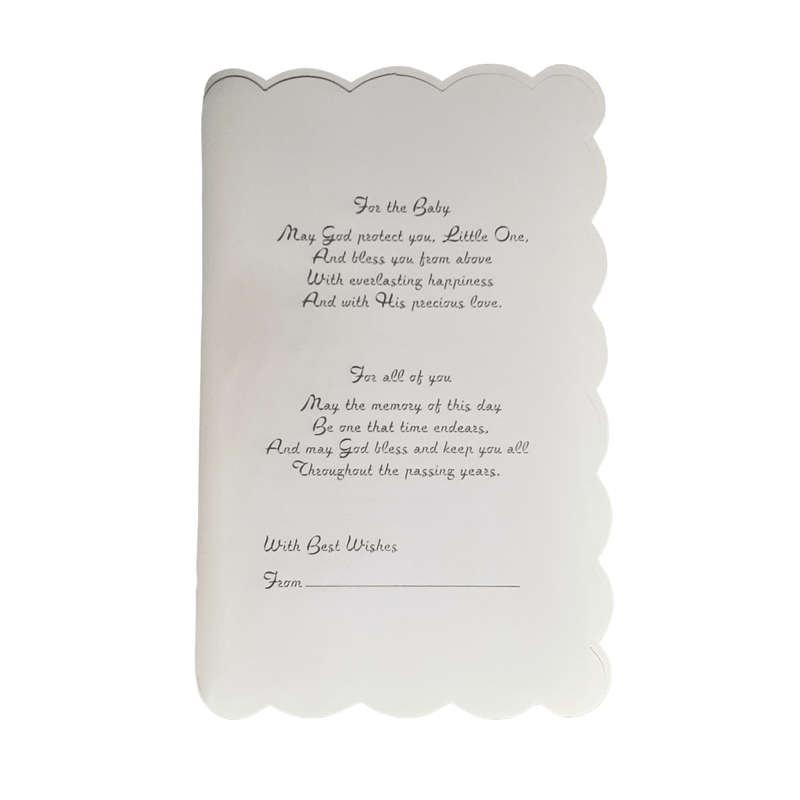 For the Baby
May God protect you, Little One,
And bless you from above
With everlasting happiness
And with His precious love.
For all of you
May the memory of this day
Be one that time endears,
And may God bless and keep you all
Throughout the passing years.
With Best Wishes
From